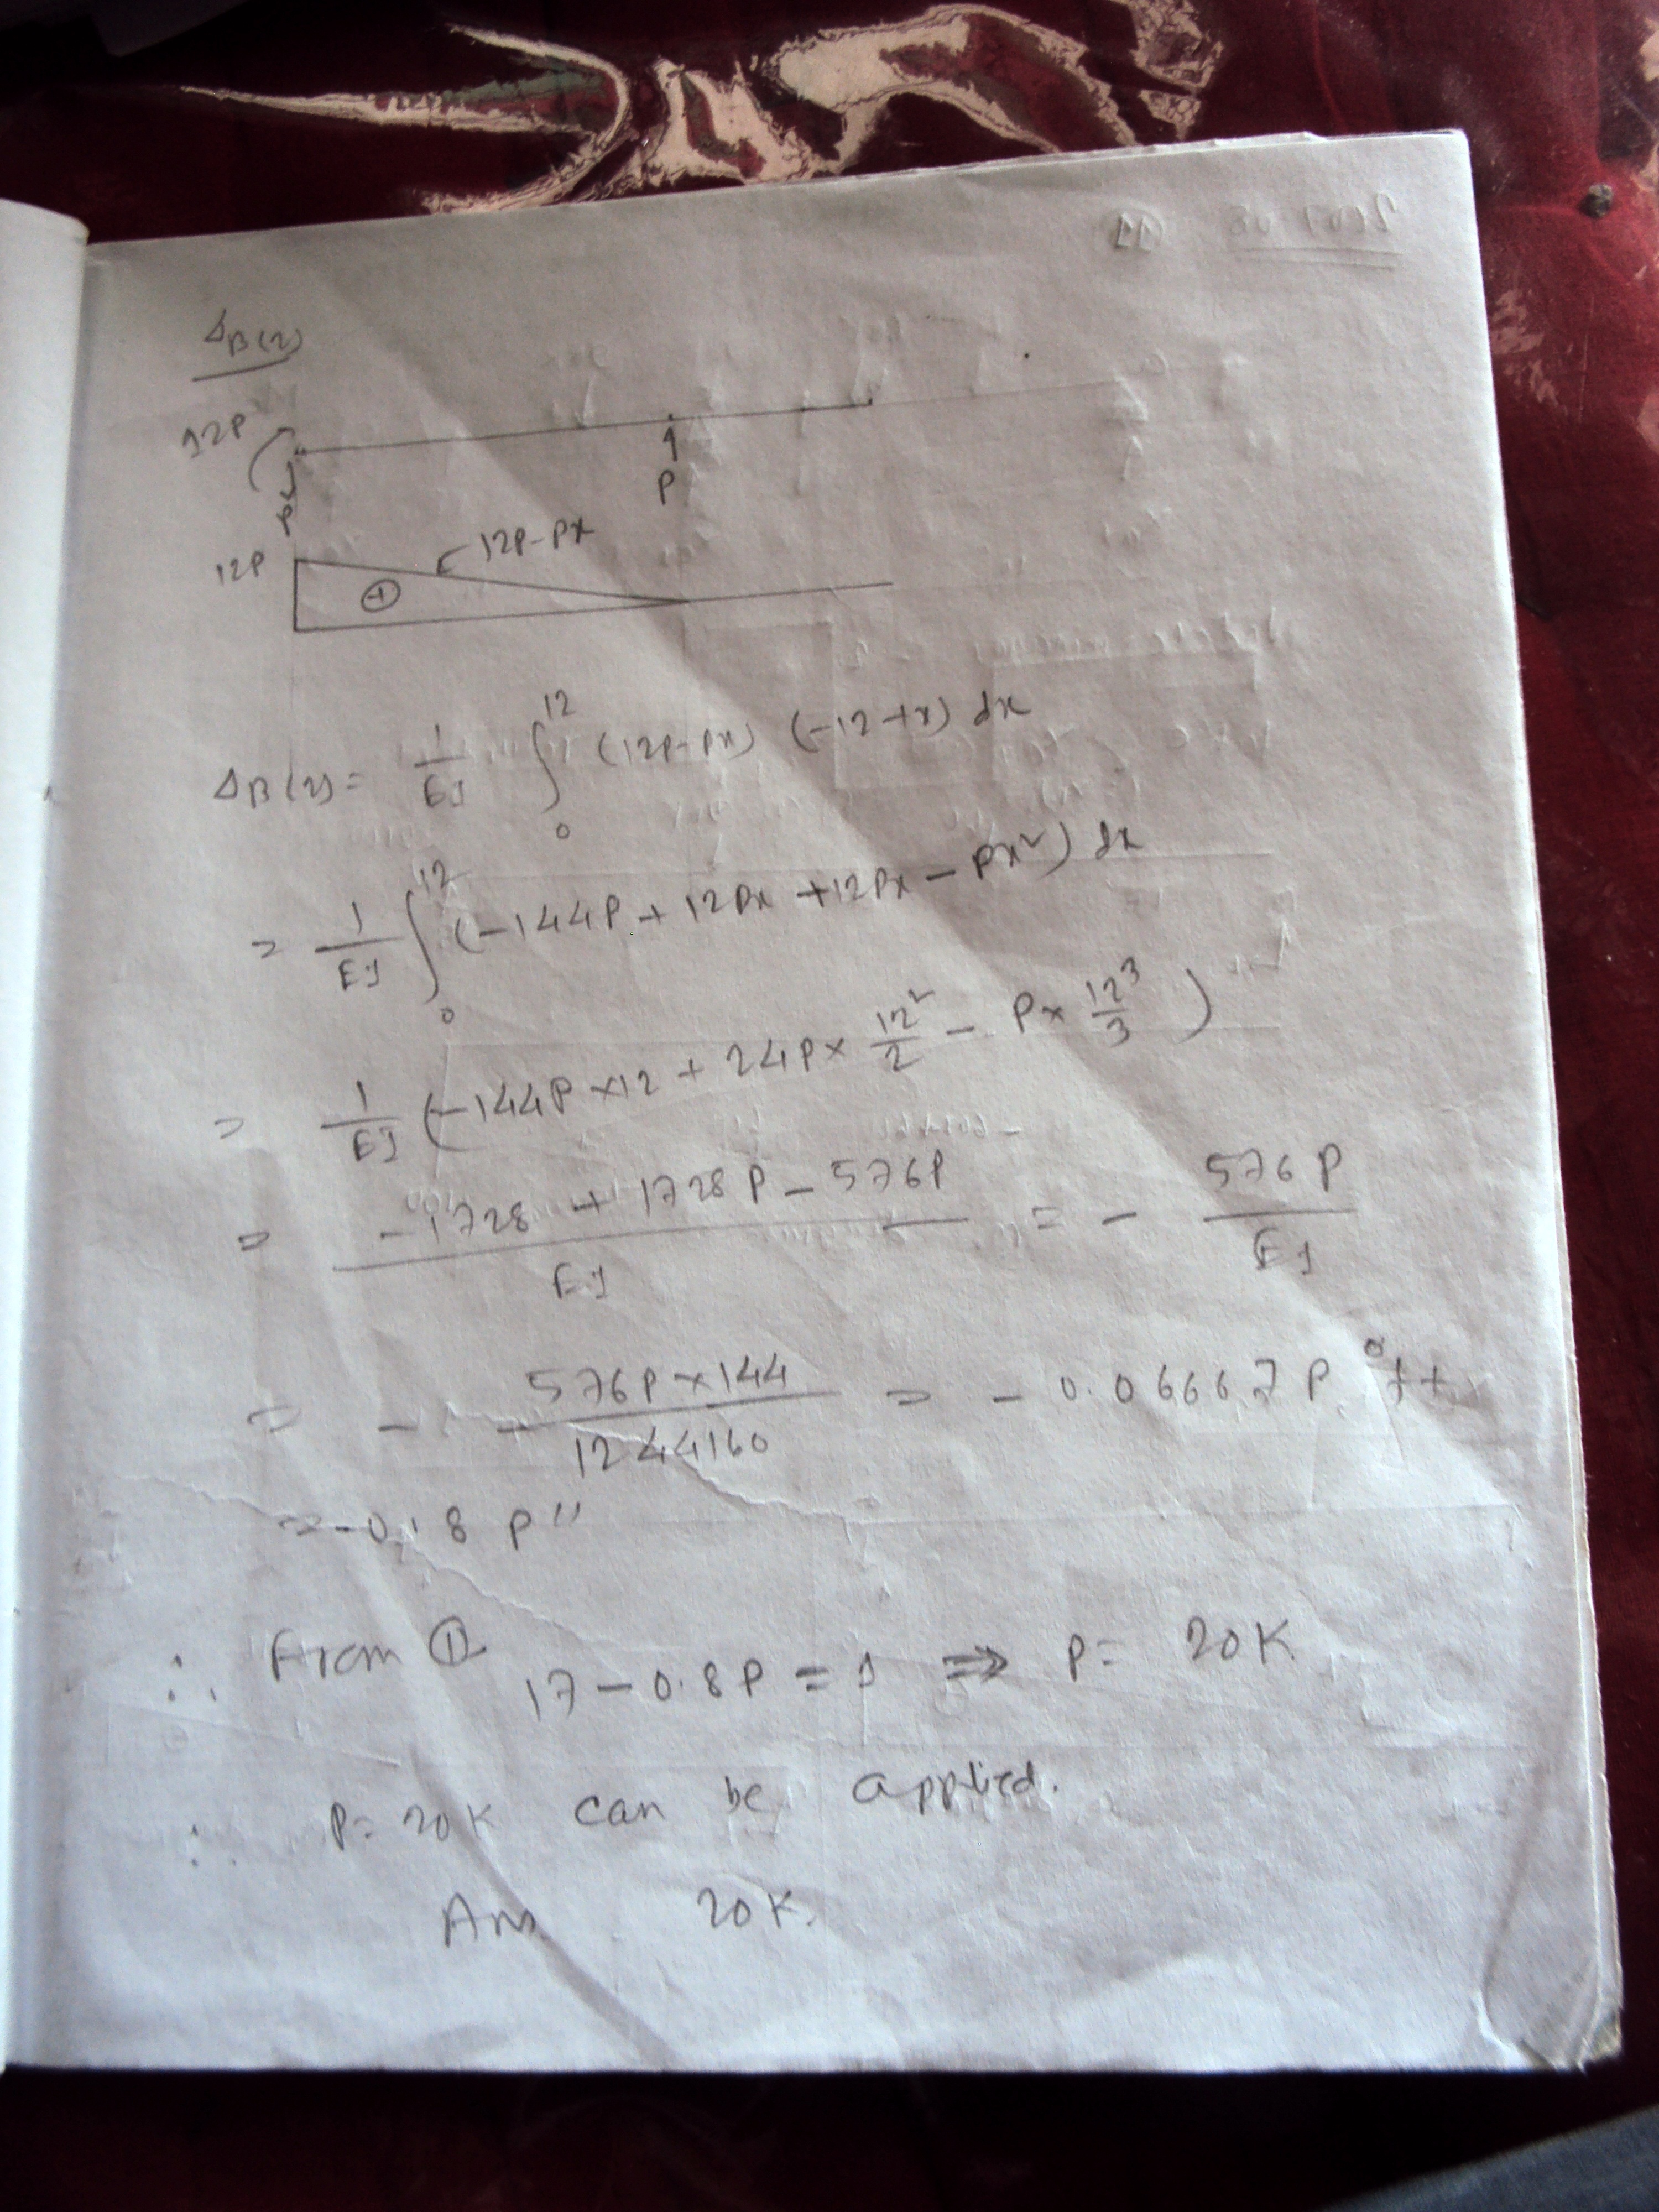 ΔB(2)
12P
P
P
12P
12P-Px
+
ΔB(2) = 1/EI ∫₀¹² (12P-Px) (-12+x) dx
= 1/EI ∫₀¹² (-144P + 12Px + 12Px - Px²) dx
= 1/EI (-144P × 12 + 24P × 12²/2 - P × 12³/3)
= (-1728 + 1728P - 576P)/EI = - 576P/EI
= - 576P × 144/1244160 = - 0.06667P ft
= -0.8 P"
∴ From ①
17 - 0.8P = 1 ⇒ P = 20K
∴ P = 20K can be applied.
Ans 20K.